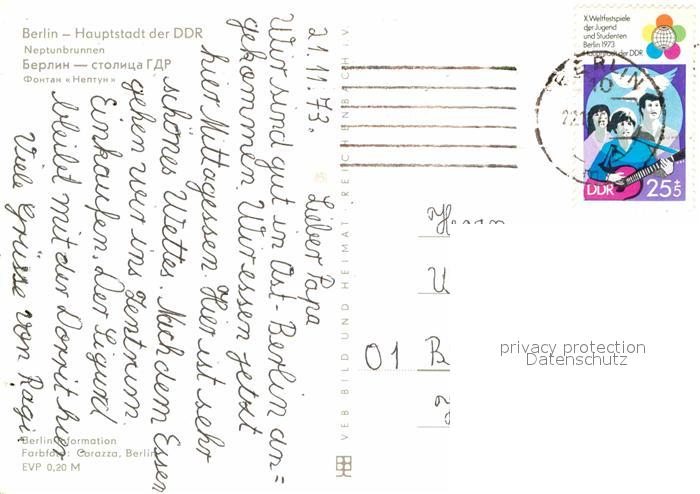 Berlin – Hauptstadt der DDR
Neptunbrunnen
Берлин — столица ГДР
Фонтан «Нептун»
21.11.73.
Lieber Papa
Wir sind gut in Ost-Berlin an=
gekommen. Wir essen jetzt
hier Mittagessen. Hier ist sehr
schönes Wetter. Nach dem Essen
gehen wir ins Zentrum
Einkaufen. Der Sigurd
bleibt mit der Dorrit hier
Viele Grüsse von Ragi.
Berlin-Information
Farbfoto: Corazza, Berlin
EVP 0,20 M
VEB BILD UND HEIMAT REICHENBACH i. V.
X. Weltfestspiele
der Jugend
und Studenten
Berlin 1973
Hauptstadt der DDR
BERLIN
DDR
25+5
Herrn
U
01 B
privacy protection
Datenschutz